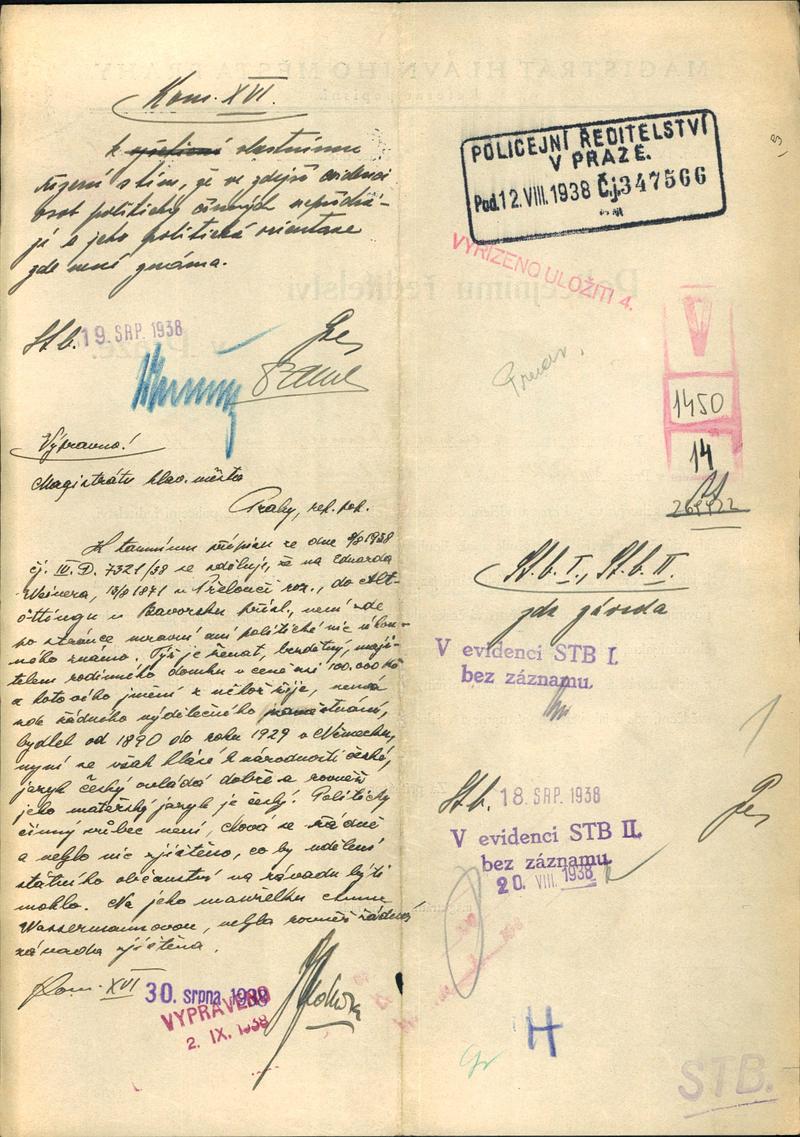 Kom. XVI.
k vlastnímu
řízení s tím, že ve zdejší evidenci
osob politicky činných nepřichá-
zí a jeho politická orientace
zde není známa.
St. b. 19. SRP. 1938
Výpravno!
Magistrátu hlav. města
Prahy, ref. pol.
K tamnímu přípisu ze dne 9/8 1938
čj. III. D. 7321/38 se sděluje, že na Eduarda
Weinera, 1871 v Přelouči roz., do Alt-
öttingu v Bavorsku přísl., není zde
po stránce mravní ani politické nic závad-
ného známo. Týž je ženat, bezdětný, maji-
telem rodinného domku v ceně asi 100.000 Kč
a hotového jmění z něhož žije, nemá
zde žádného výdělečného zaměstnání,
bydlel od 1890 do roku 1929 v Německu,
nyní se však hlásí k národnosti české,
jazyk český ovládá dobře a rovněž
jeho mateřský jazyk je český. Politicky
činný vůbec není, chová se řádně
a nebylo nic zjištěno, co by udělení
státního občanství na závadu býti
mohlo. Na jeho manželku
Wassermannovou, nebyla rovněž žádná
závada zjištěna.
Kom. XVI 30. srpna 1938
VYPRAVENO
2. IX. 1938
POLICEJNÍ ŘEDITELSTVÍ
V PRAZE.
Pod. 12. VIII. 1938 Čj. 347566
VYŘÍZENO ULOŽITI 4.
V
1450
14
St. b. I., St. b. II.
zda závada
V evidenci STB I.
bez záznamu.
St. b. 18. SRP. 1938
V evidenci STB II.
bez záznamu.
20. VIII. 1938
H
STB.